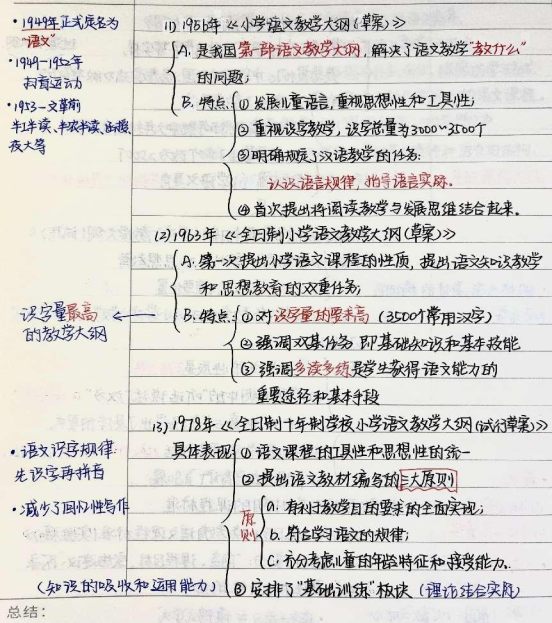 • 1949年正式定名为
"语文"
• 1949-1952年
扫盲运动
• 1953-文革前
半工半读、半农半读、函授、
夜大等
(1) 1956年《小学语文教学大纲(草案)》
A. 是我国第一部语文教学大纲,解决了语文教学"教什么"
的问题;
B. 特点: ① 发展儿童语言,重视思想性和工具性;
② 重视识字教学,识字总量为3000~3500个
③ 明确规定了汉语教学的任务:
认识语言规律,指导语言实践.
④ 首次提出将阅读教学与发展思维结合起来.
(2) 1963年《全日制小学语文教学大纲(草案)》
A. 第一次提出小学语文课程的性质,提出语文知识教学
和思想教育的双重任务;
识字量最高
的教学大纲
B. 特点: ① 对识字量的要求高 (3500个常用汉字)
② 强调双基任务 即基础知识和基本技能
③ 强调多读多练是学生获得语文能力的
重要途径和基本手段
(3) 1978年《全日制十年制学校小学语文教学大纲(试行草案)》
• 语文识字规律:
先识字再拼音
• 减少了回忆性写作
具体表现: ① 语文课程的工具性和思想性的统一
② 提出语文教材编写的三大原则
原则
a. 有利于教学目的要求的全面实现;
b. 符合学习语文的规律;
c. 充分考虑儿童的年龄特征和接受能力.
(知识的吸收和运用能力)
③ 安排了"基础训练"板块 (理论结合实际)
总结: